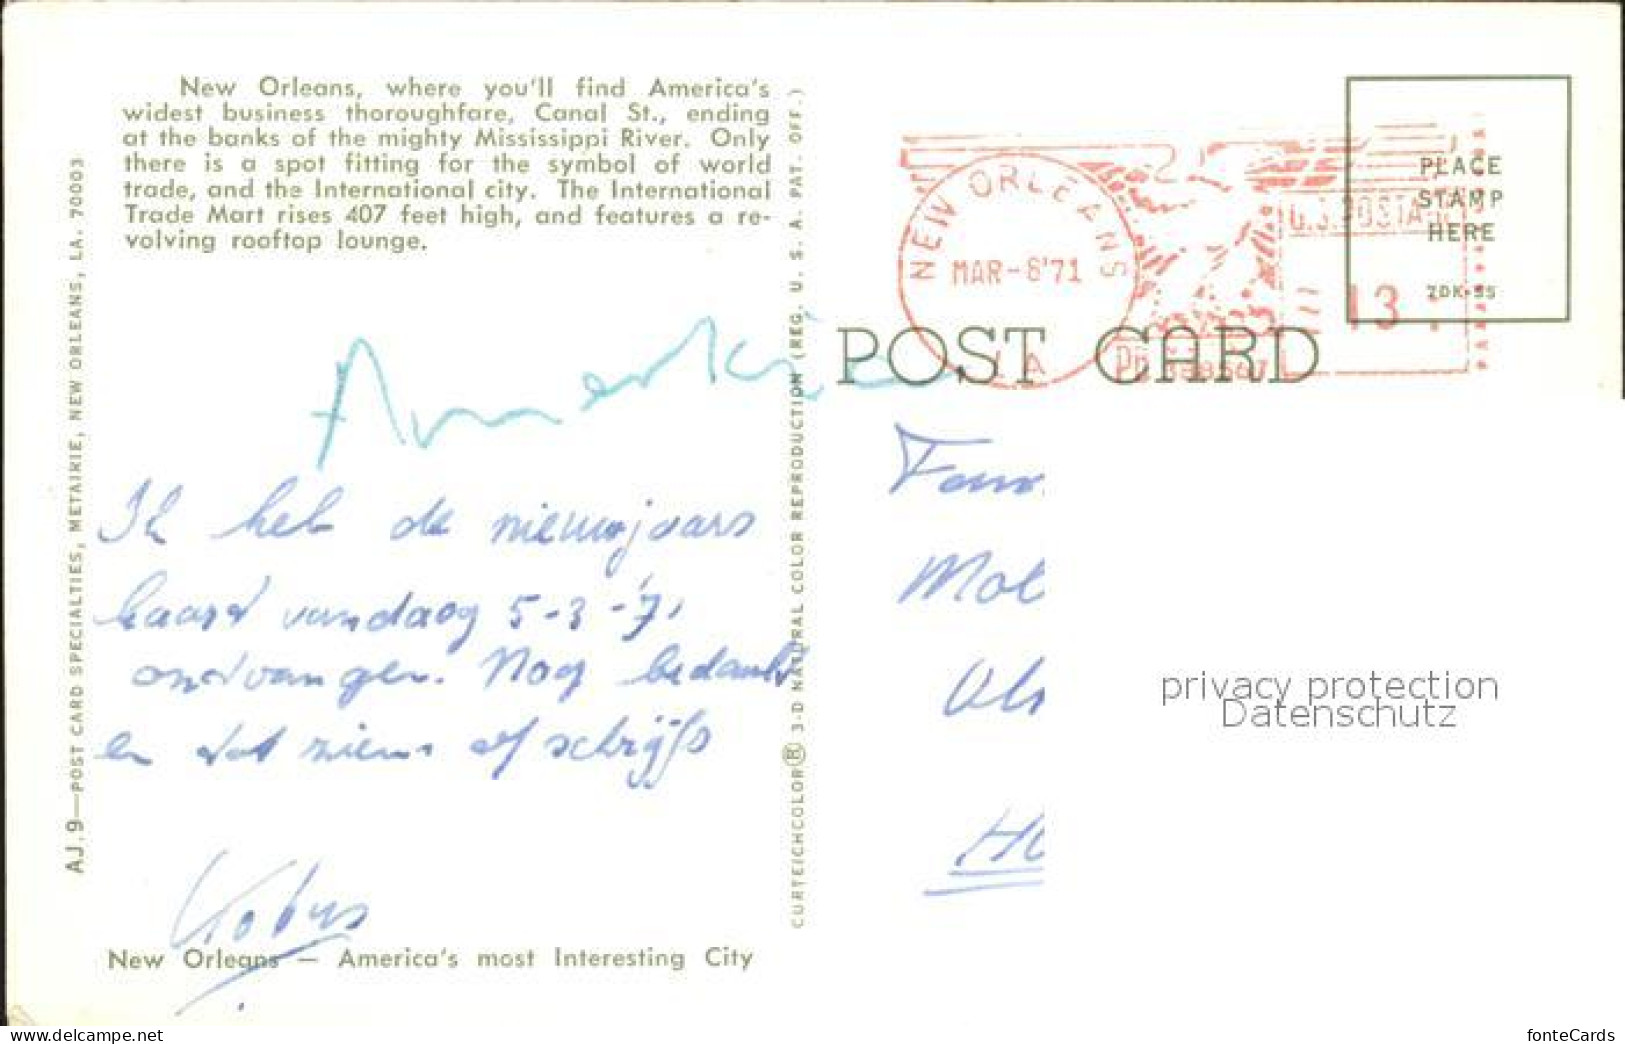 New Orleans, where you'll find America's
widest business thoroughfare, Canal St., ending
at the banks of the mighty Mississippi River. Only
there is a spot fitting for the symbol of world
trade, and the International city. The International
Trade Mart rises 407 feet high, and features a re-
volving rooftop lounge.
AJ.9—POST CARD SPECIALTIES, METAIRIE, NEW ORLEANS, LA. 70003
Amerika
Ik heb de nieuwjaars
kaart vandaag 5-3-'71
ontvangen. Nog bedankt
en tot ziens of schrijfs
Kobus
New Orleans — America's most Interesting City
CURTEICHCOLOR® 3-D NATURAL COLOR REPRODUCTION (REG. U. S. A. PAT. OFF.)
POST CARD
NEW ORLEANS
MAR-6'71
LA
U.S. POSTAGE
13
PLACE
STAMP
HERE
7DK-55
Fam.
privacy protection
Datenschutz
www.delcampe.net
fonteCards